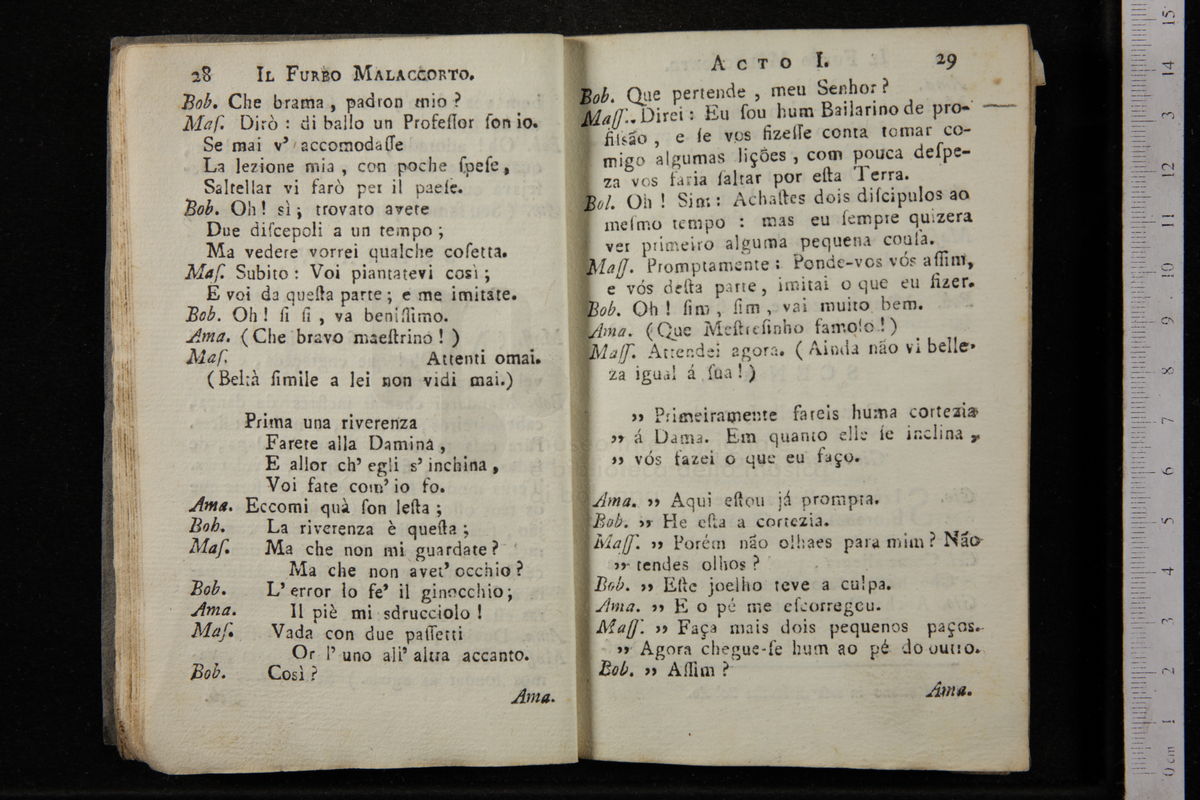 28 IL FURBO MALACCORTO.
Bob. Che brama , padron mio ?
Maſ. Dirò : di ballo un Profeſſor ſon io.
Se mai v' accomodaſſe
La lezione mia , con poche ſpeſe ,
Saltellar vi farò per il paeſe.
Bob. Oh ! sì ; trovato avete
Due diſcepoli a un tempo ;
Ma vedere vorrei qualche coſetta.
Maſ. Subito : Voi piantatevi così ;
E voi da queſta parte ; e me imitate.
Bob. Oh ! ſi ſi , va beniſſimo.
Ama. ( Che bravo maeſtrino ! )
Maſ. Attenti omai.
( Beltà ſimile a lei non vidi mai.)
Prima una riverenza
Farete alla Damina ,
E allor ch' egli s' inchina ,
Voi fate com' io fo.
Ama. Eccomi quà ſon leſta ;
Bob. La riverenza è queſta ;
Maſ. Ma che non mi guardate ?
Ma che non avet' occhio ?
Bob. L' error lo fe' il ginocchio ;
Ama. Il piè mi sdrucciolo !
Maſ. Vada con due paſſetti
Or l' uno all' altra accanto.
Bob. Così ?
Ama.
ACTO I. 29
Bob. Que pertende , meu Senhor ?
Maſſ. Direi : Eu ſou hum Bailarino de pro-
fiſsão , e ſe vos fizeſſe conta tomar co-
migo algumas lições , com pouca deſpe-
za vos faria ſaltar por eſta Terra.
Bol. Oh ! Sim : Achaſtes dois diſcipulos ao
meſmo tempo : mas eu ſempre quizera
ver primeiro alguma pequena couſa.
Maſſ. Promptamente : Ponde-vos vós aſſim,
e vós deſta parte , imitai o que eu fizer.
Bob. Oh ! ſim , ſim , vai muito bem.
Ama. ( Que Meſtreſinho famoſo ! )
Maſſ. Attendei agora. ( Ainda não vi belle-
za igual á ſua ! )
„ Primeiramente fareis huma cortezia
„ á Dama. Em quanto elle ſe inclina ,
„ vós fazei o que eu faço.
Ama. „ Aqui eſtou já prompta.
Bob. „ He eſta a cortezia.
Maſſ. „ Porém não olhaes para mim ? Não
„ tendes olhos ?
Bob. „ Eſte joelho teve a culpa.
Ama. „ E o pé me eſcorregou.
Maſſ. „ Faça mais dois pequenos paços.
„ Agora chegue-ſe hum ao pé do outro.
Bob. „ Aſſim ?
Ama.
0 cm 1 2 3 4 5 6 7 8 9 10 11 12 13 14 15